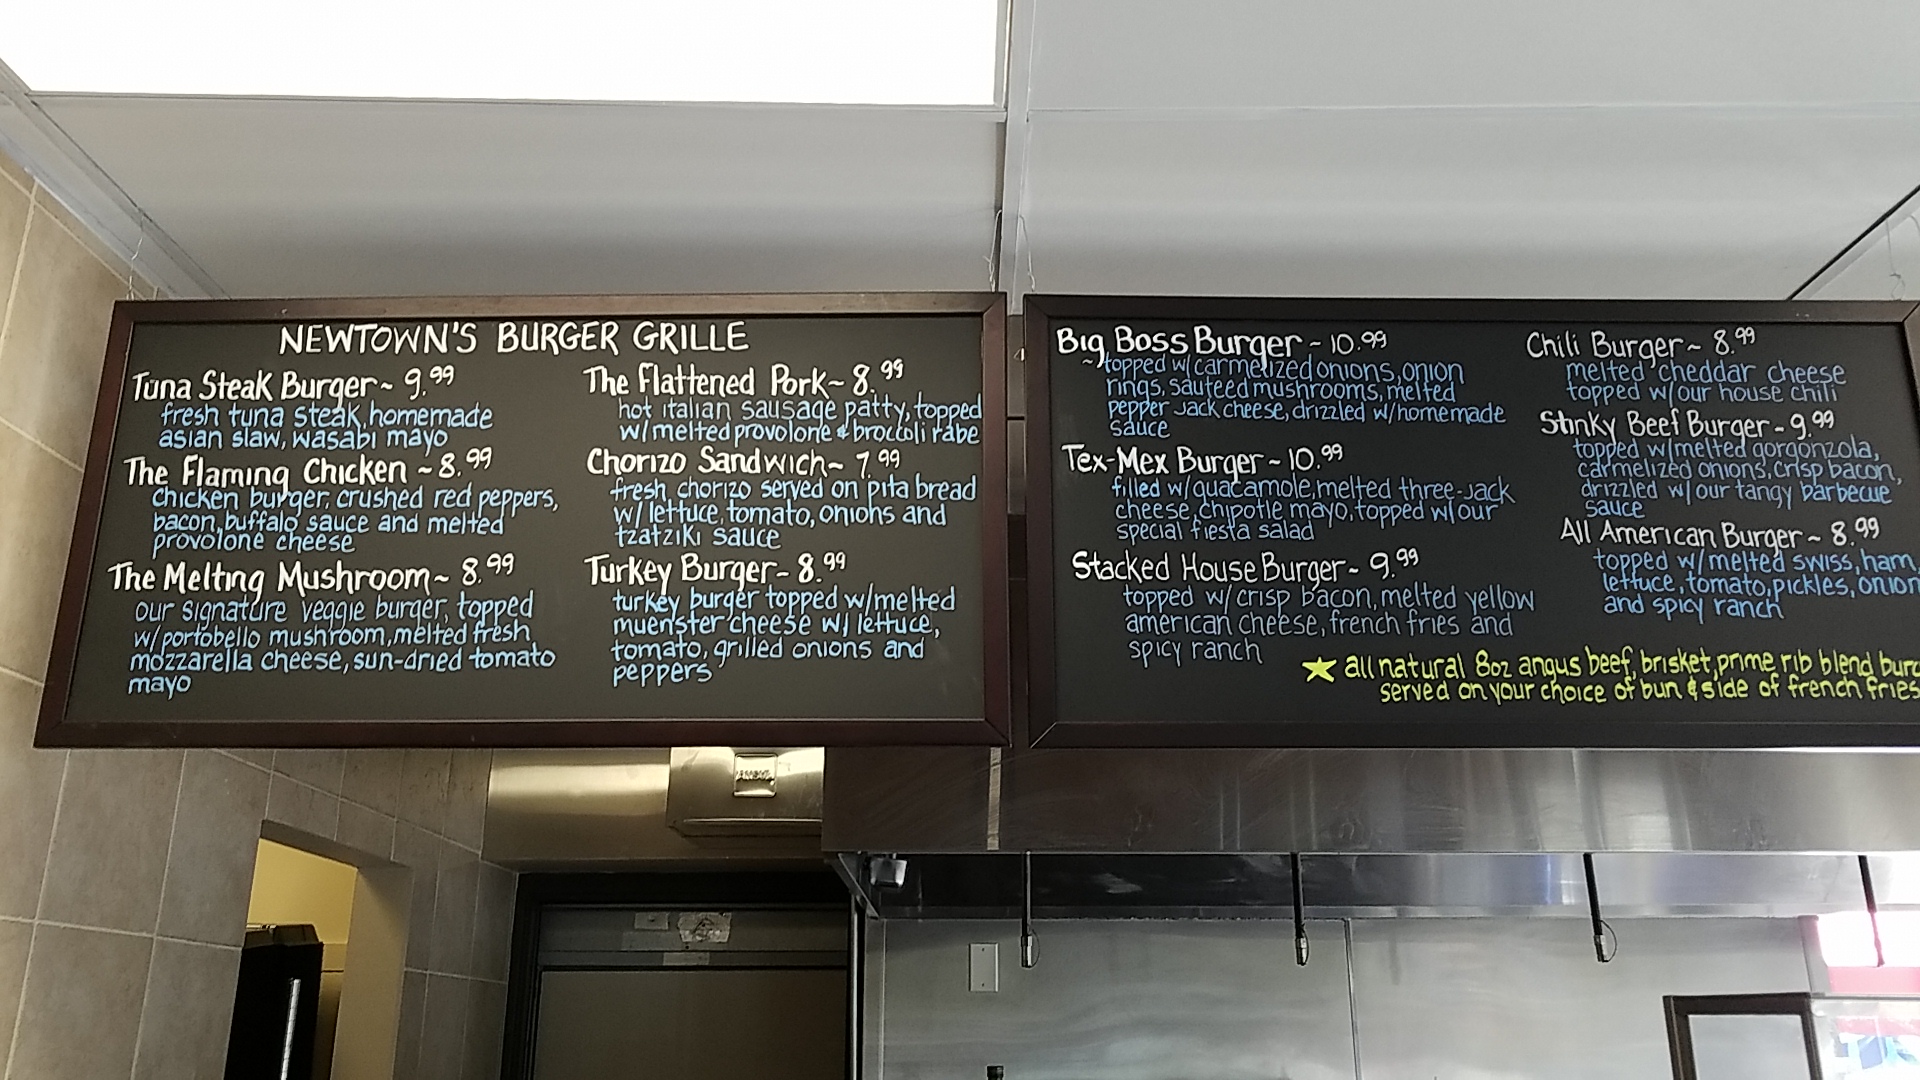 NEWTOWN'S BURGER GRILLE
Tuna Steak Burger ~ 9.99
fresh tuna steak, homemade
asian slaw, wasabi mayo
The Flaming Chicken ~ 8.99
chicken burger, crushed red peppers,
bacon, buffalo sauce and melted
provolone cheese
The Melting Mushroom ~ 8.99
our signature veggie burger, topped
w/portobello mushroom, melted fresh
mozzarella cheese, sun-dried tomato
mayo
The Flattened Pork ~ 8.99
hot italian sausage patty, topped
w/melted provolone & broccoli rabe
Chorizo Sandwich ~ 7.99
fresh chorizo served on pita bread
w/ lettuce, tomato, onions and
tzatziki sauce
Turkey Burger ~ 8.99
turkey burger topped w/melted
muenster cheese w/ lettuce,
tomato, grilled onions and
peppers
Big Boss Burger ~ 10.99
~ topped w/carmelized onions, onion
rings, sauteed mushrooms, melted
pepper jack cheese, drizzled w/homemade
sauce
Tex-Mex Burger ~ 10.99
filled w/guacamole, melted three-jack
cheese, chipotle mayo, topped w/our
special fiesta salad
Stacked House Burger ~ 9.99
topped w/crisp bacon, melted yellow
american cheese, french fries and
spicy ranch
Chili Burger ~ 8.99
melted cheddar cheese
topped w/our house chili
Stinky Beef Burger ~ 9.99
topped w/melted gorgonzola,
carmelized onions, crisp bacon,
drizzled w/our tangy barbecue
sauce
All American Burger ~ 8.99
topped w/melted swiss, ham,
lettuce, tomato, pickles, onion
and spicy ranch
★ all natural 8oz angus beef, brisket, prime rib blend
served on your choice of bun & side of french fries